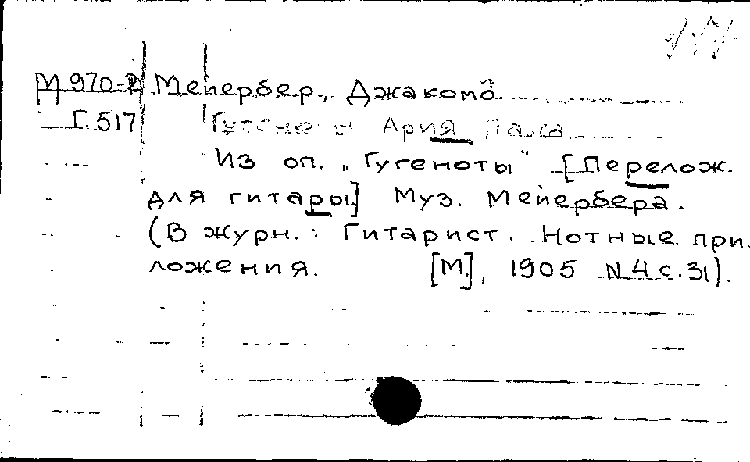 М 970-2 Мейербер, Джакомо
Г.517 Гугеноты Ария Пажа
Из оп. „Гугеноты" [Перелож.
для гитары] Муз. Мейербера.
(В журн.: Гитарист. Нотные при
ложения. [М], 1905 N4 с.31).